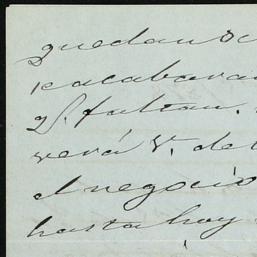 quedan
acabaran
faltan.
verá V. de
el negocio
hasta hoy